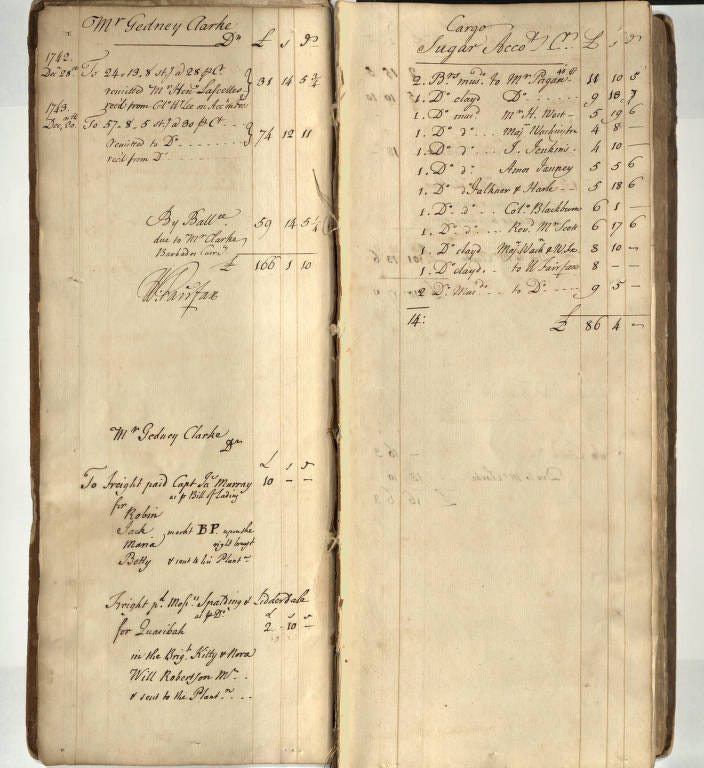 Mr Gedney Clarke
Dr £ s D
1742
Decr 28th To 24.13.8 Stg @ 28 pr Ct
remitted Mr Henry Lascelles 31 14 5 3/4
recd from Colo Wm Lee on Acco
1743
Decr 20th To 57.8.5 Stg @ 30 pr Ct
remitted to Do 74 12 11
recd from Do
By Ballce 59 14 5 1/4
due to Mr Clarke
Barbados Curry
£ 166 1 10
W: Fairfax
Mr Gedney Clarke
Dr
£ s D
To Freight paid Capt Jas Murray 10 — —
as pr Bill of Lading
for
Robin
Jack markt BP. upon the
Maria right breast
Betty & sent to his Plantn
Freight pd Messrs Spalding & Lidderdale
as pr Do £ s D
for Quasibah 2 10 —
in the Brigt Kitty & Nora
Will Robertson Mr
& sent to the Plantn
Cargo
Sugar Accot Cr £ s D
2. Brs musc. to Mr Pagan 11 10 5
1. Do clayd Do 9 18 7
1. Do mus Mr H. West 5 19 6
1. Do do Majr Washington 4 8 —
1. Do do J. Jenkins 4 10 —
1. Do do Amos Janney 5 5 6
1. Do do Falkner & Harle 5 18 6
1. Do do Colo Blackburn 6 1 —
1. Do do Revd Mr Scott 6 17 6
1. Do clayd Majr Wash & W. Fx 8 10 —
1. Do clayd to W Fairfax 8 — —
2 Do Mus to Do 9 5 —
14: £ 86 4 —